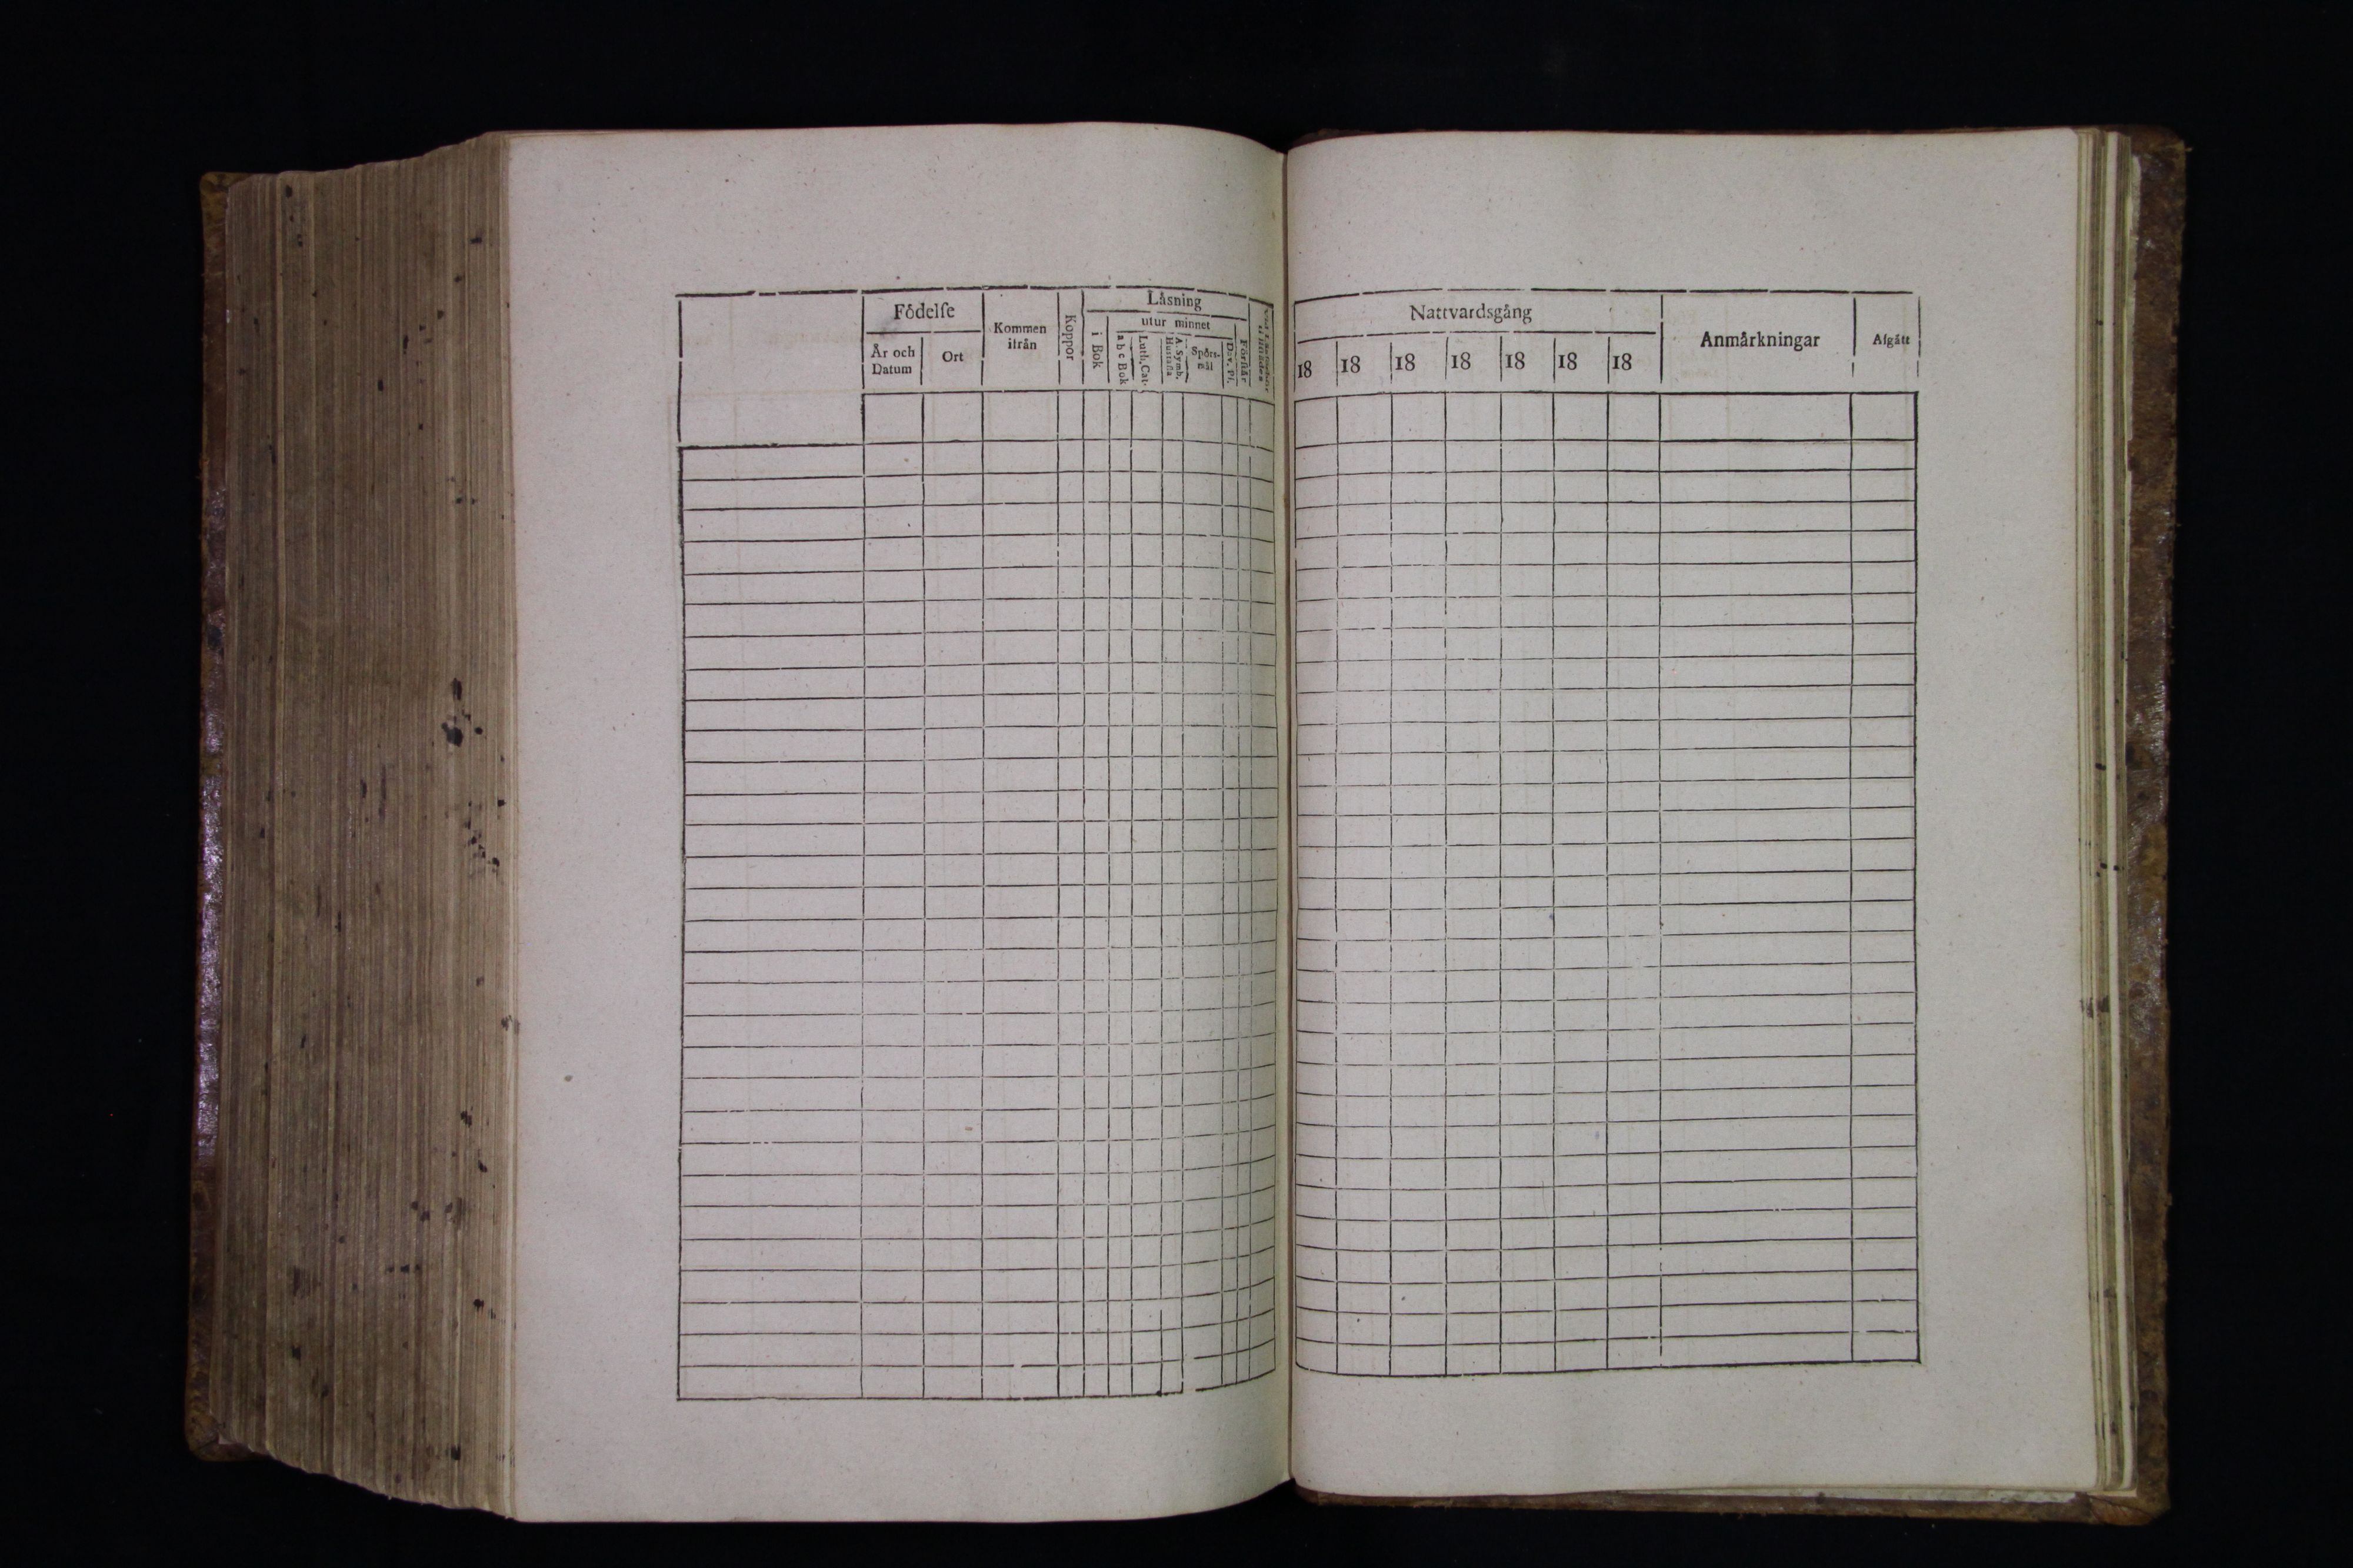 Födelſe
År och Datum
Ort
Kommen ifrån
Koppor
Låsning
i Bok
utur minnet
a b c Bok
Luth. Cat.
A. Symb. Huſtafla
Spörs-mål
Dav. Pſ.
Förſtår
Nattvardsgång
18 18 18 18 18 18 18
Anmårkningar
Afgått